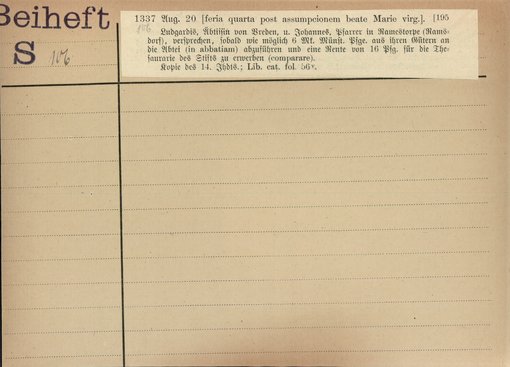 Beiheft
S 106
1337 Aug. 20 [feria quarta post assumpcionem beate Marie virg.]. [195
106
Ludgardis, Äbtissin von Vreden, u. Johannes, Pfarrer in Ramestorpe (Rams-
dorf), versprechen, sobald wie möglich 6 Mk. Münst. Pfge. aus ihren Gütern an
die Abtei (in abbatiam) abzuführen und eine Rente von 16 Pfg. für die The-
saurarie des Stifts zu erwerben (comparare).
Kopie des 14. Jhdts.; Lib. cat. fol. 56v.